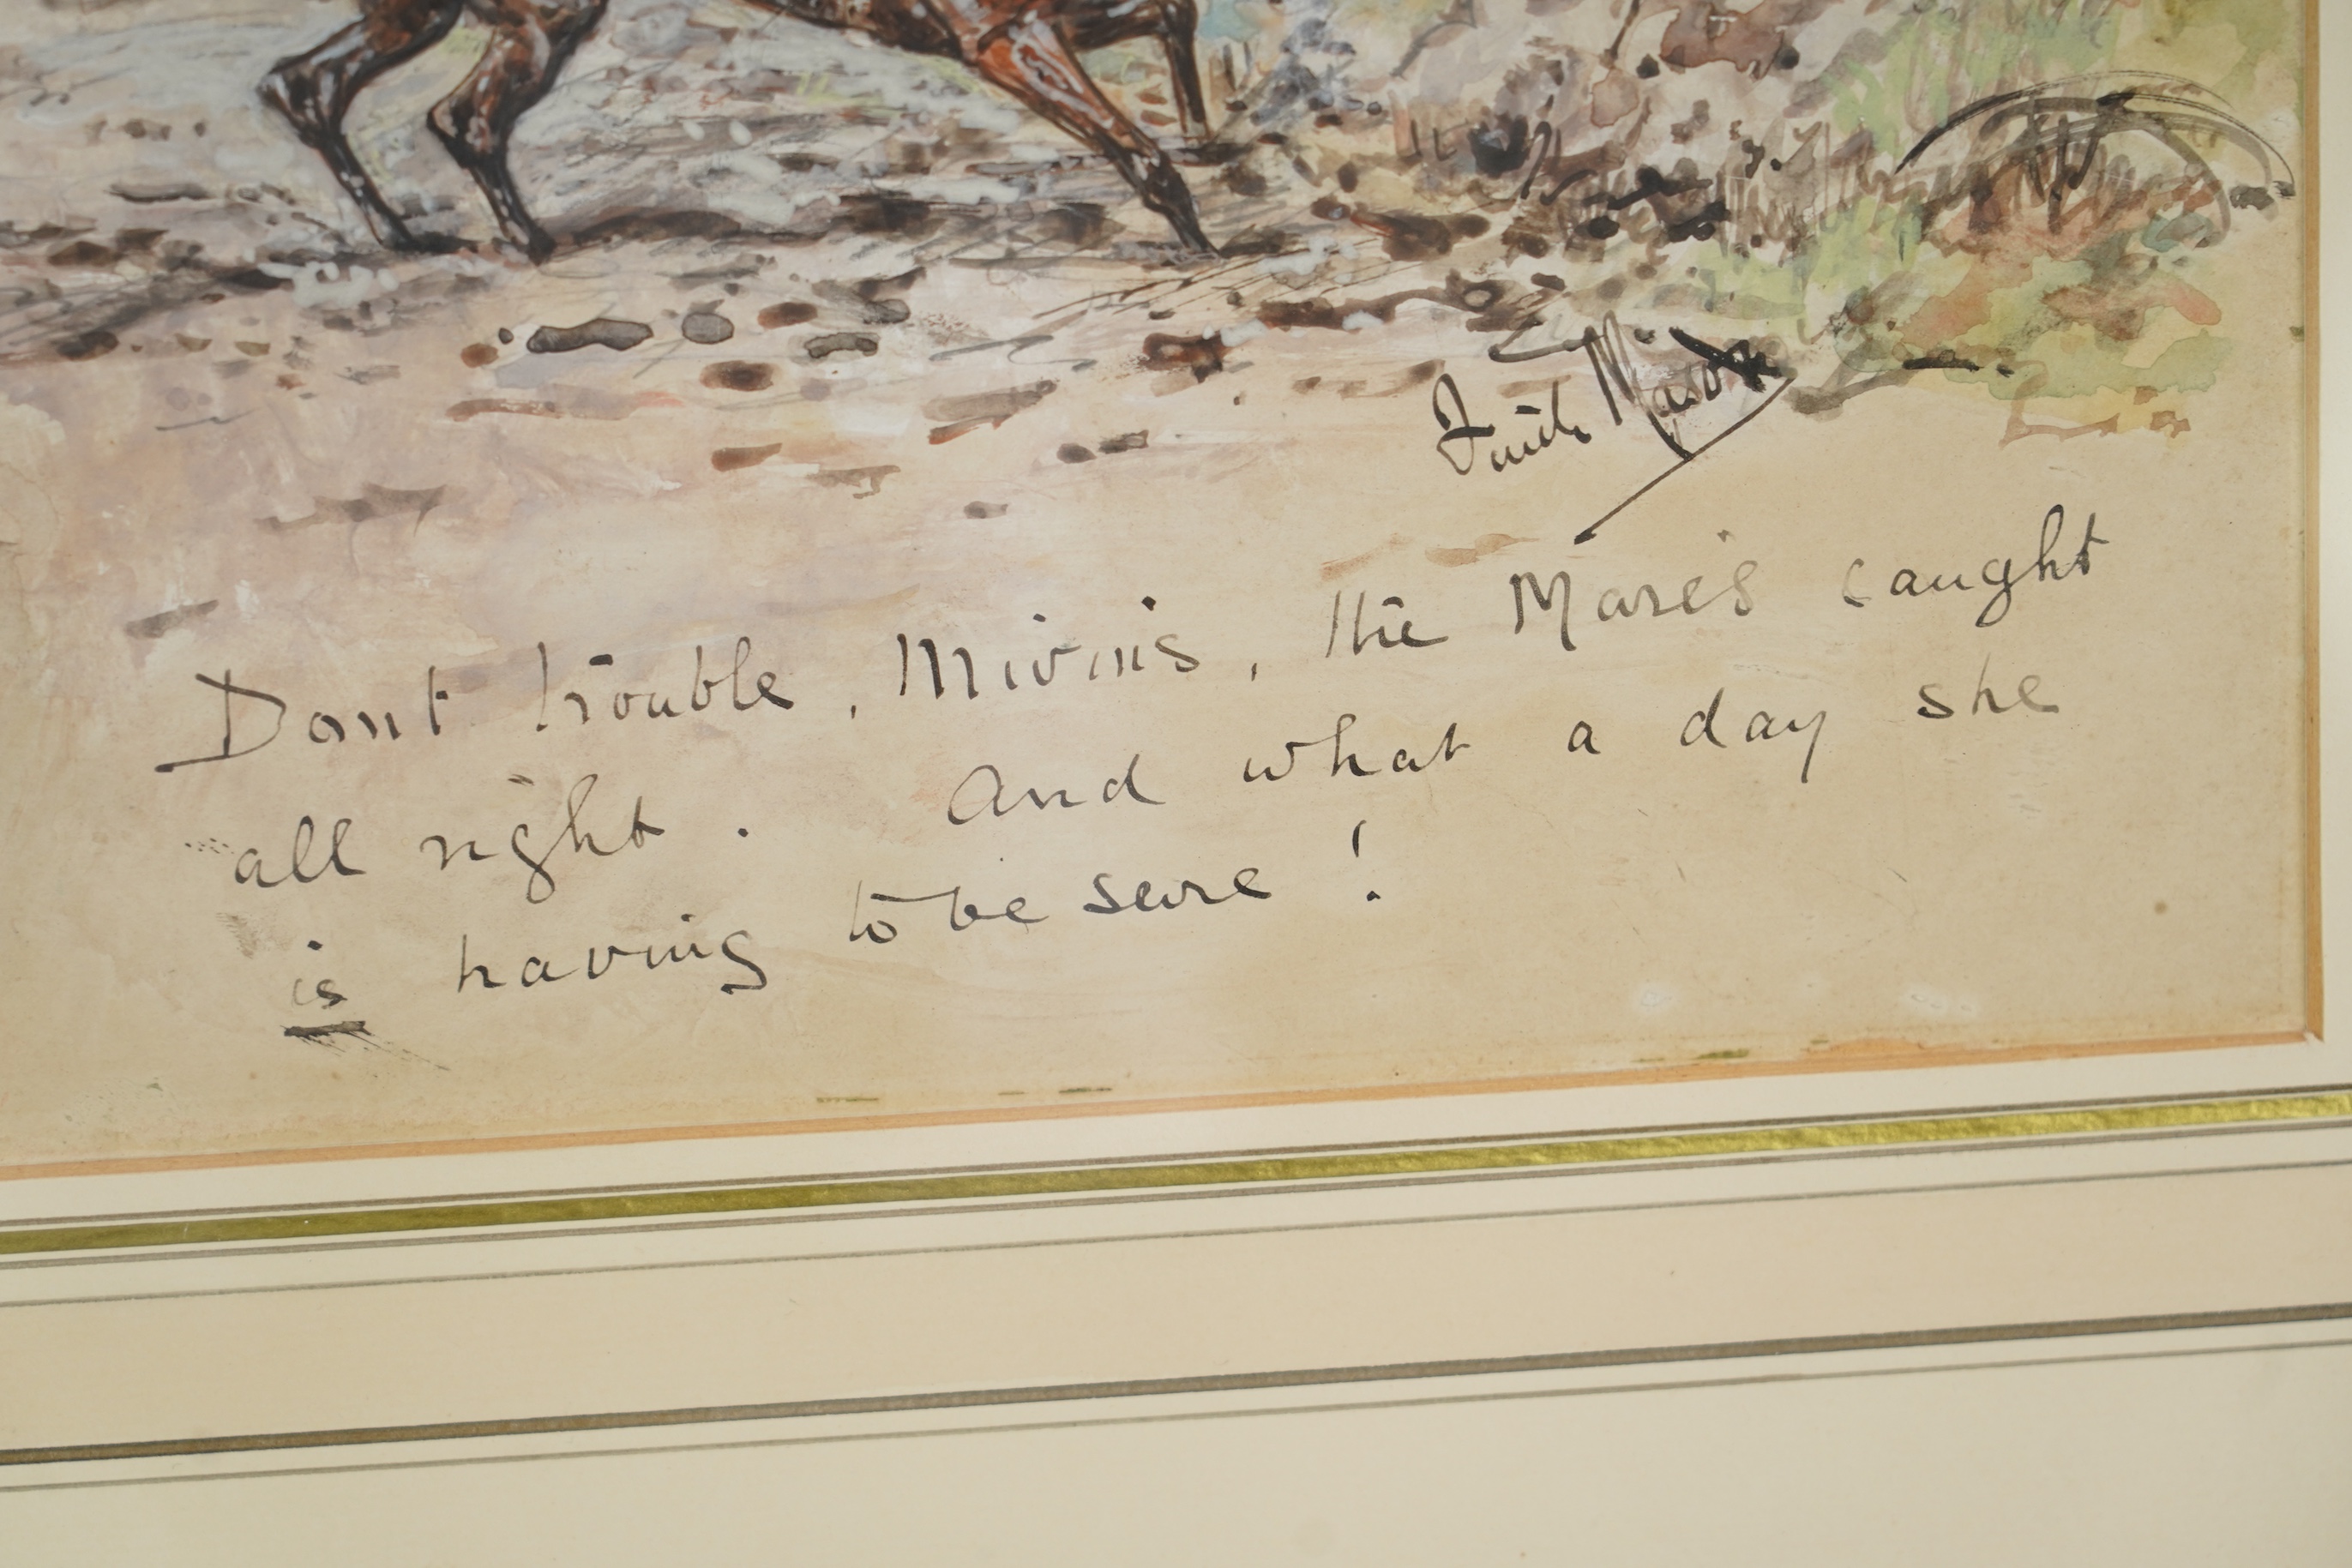 Mason
Dont trouble, Mivins, the Mare's caught
all right. And what a day she
is having to be sure!